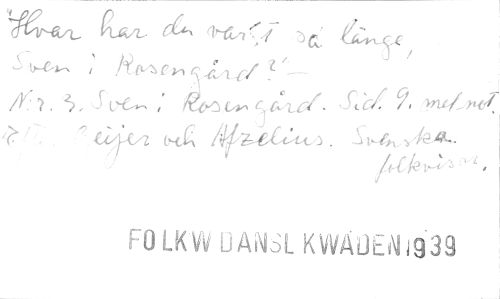 "Hvar har du varit så länge,
Sven i Rosengård?" —
N:r. 3. Sven i Rosengård. Sid. 9. med not.
Geijer och Afzelius. Svenska
folkvisor.
FOLKW DANSL KWÄDEN 1939